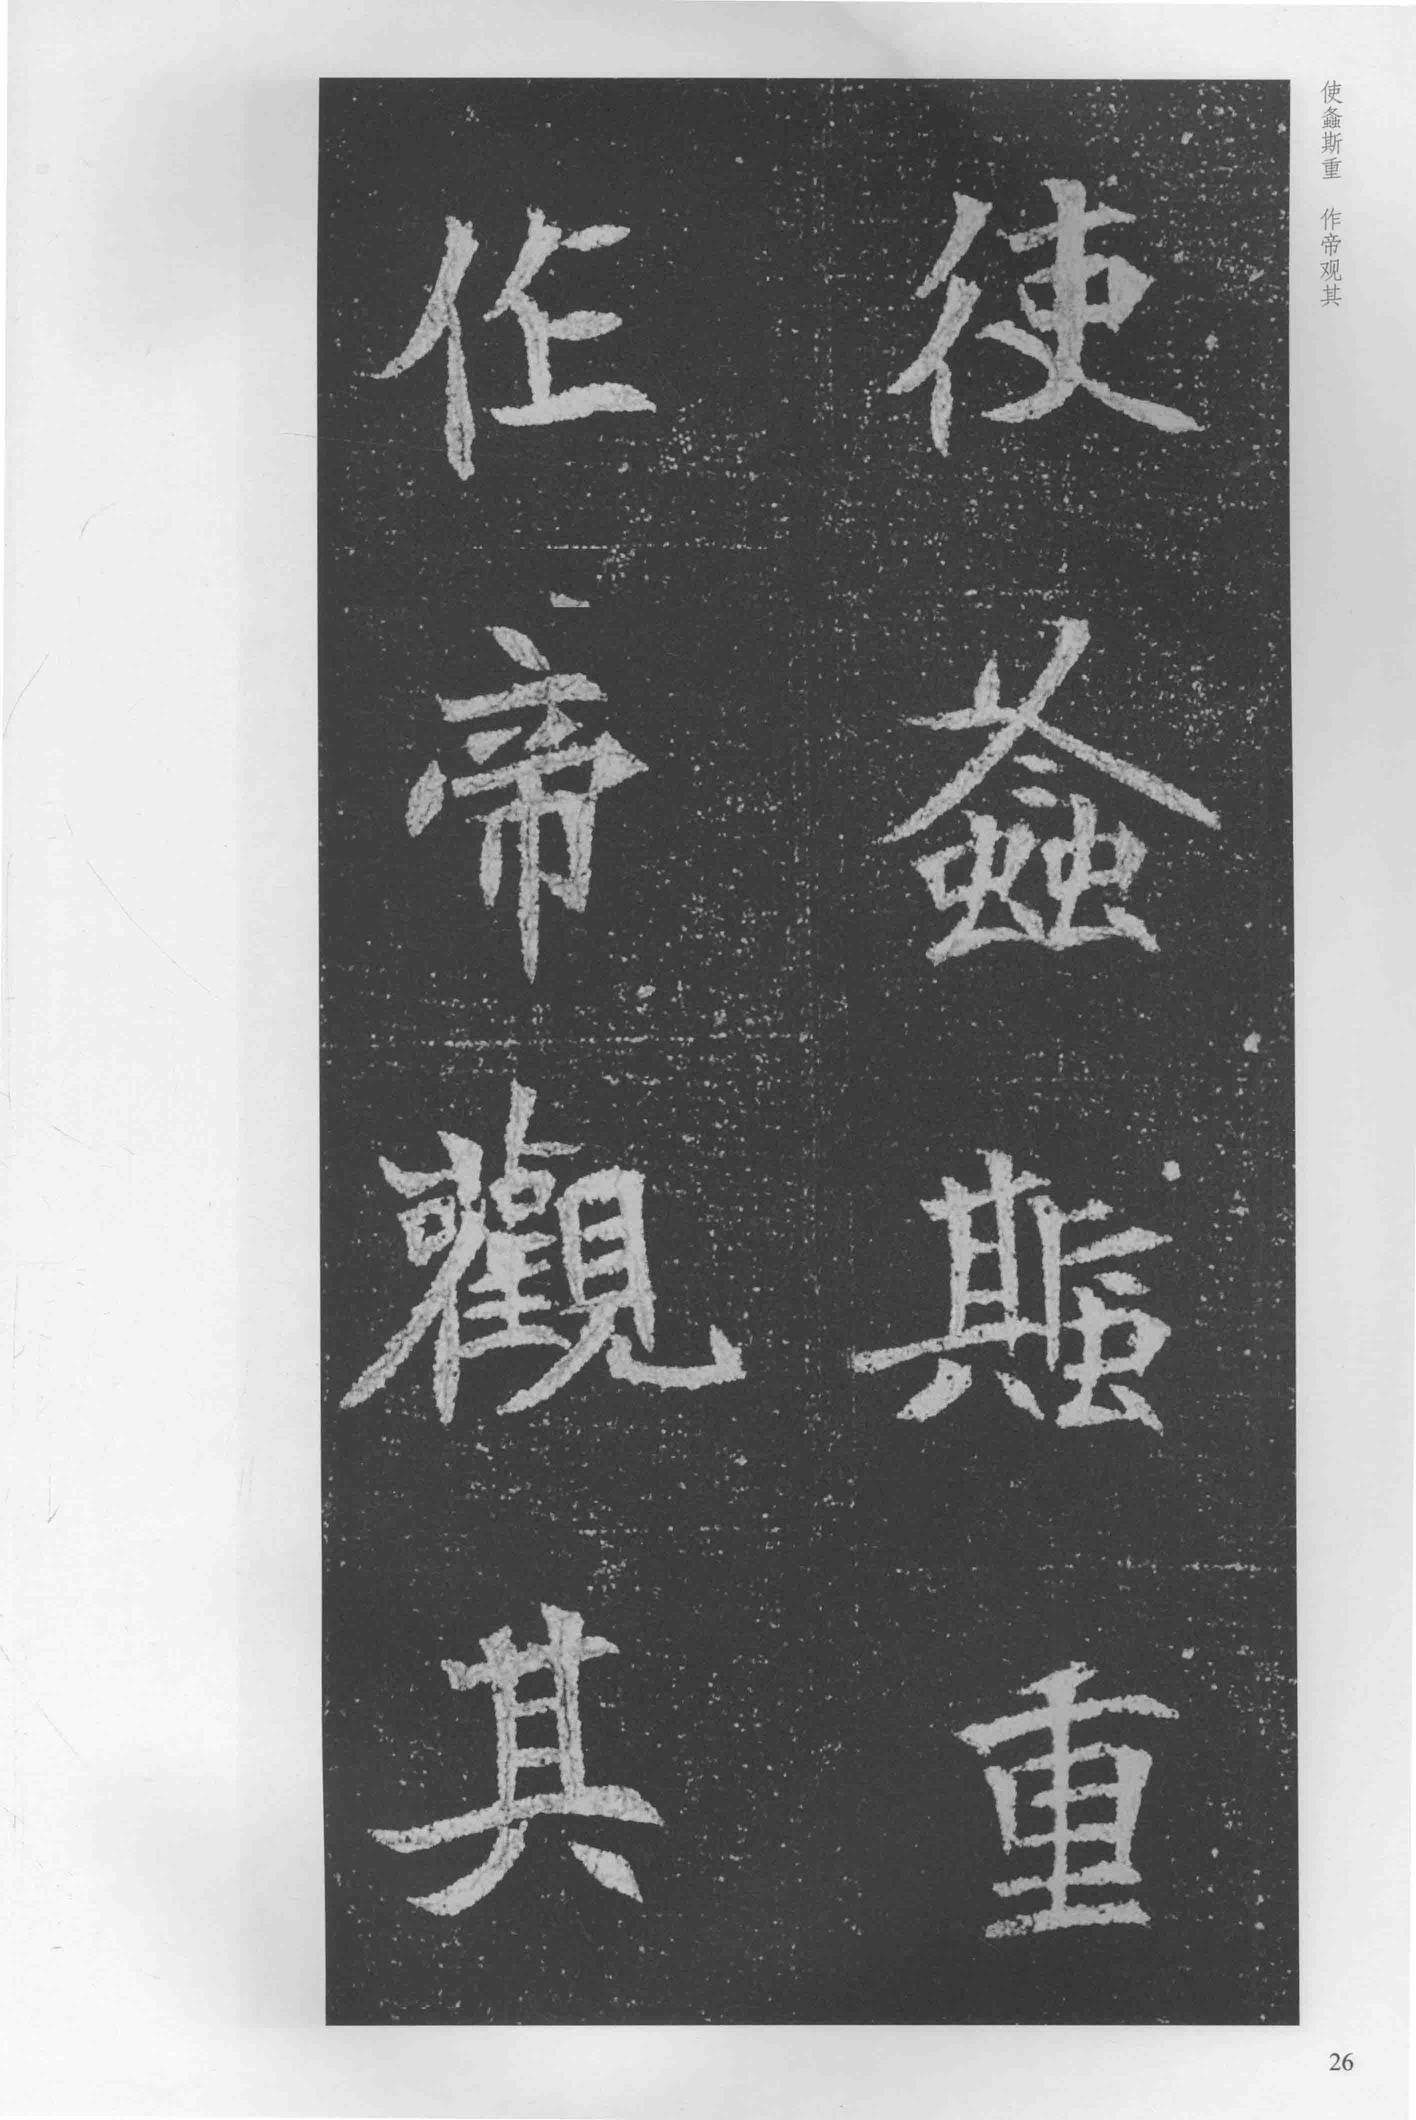 使螽蟴重
作帝觀其
使螽斯重 作帝观其
26